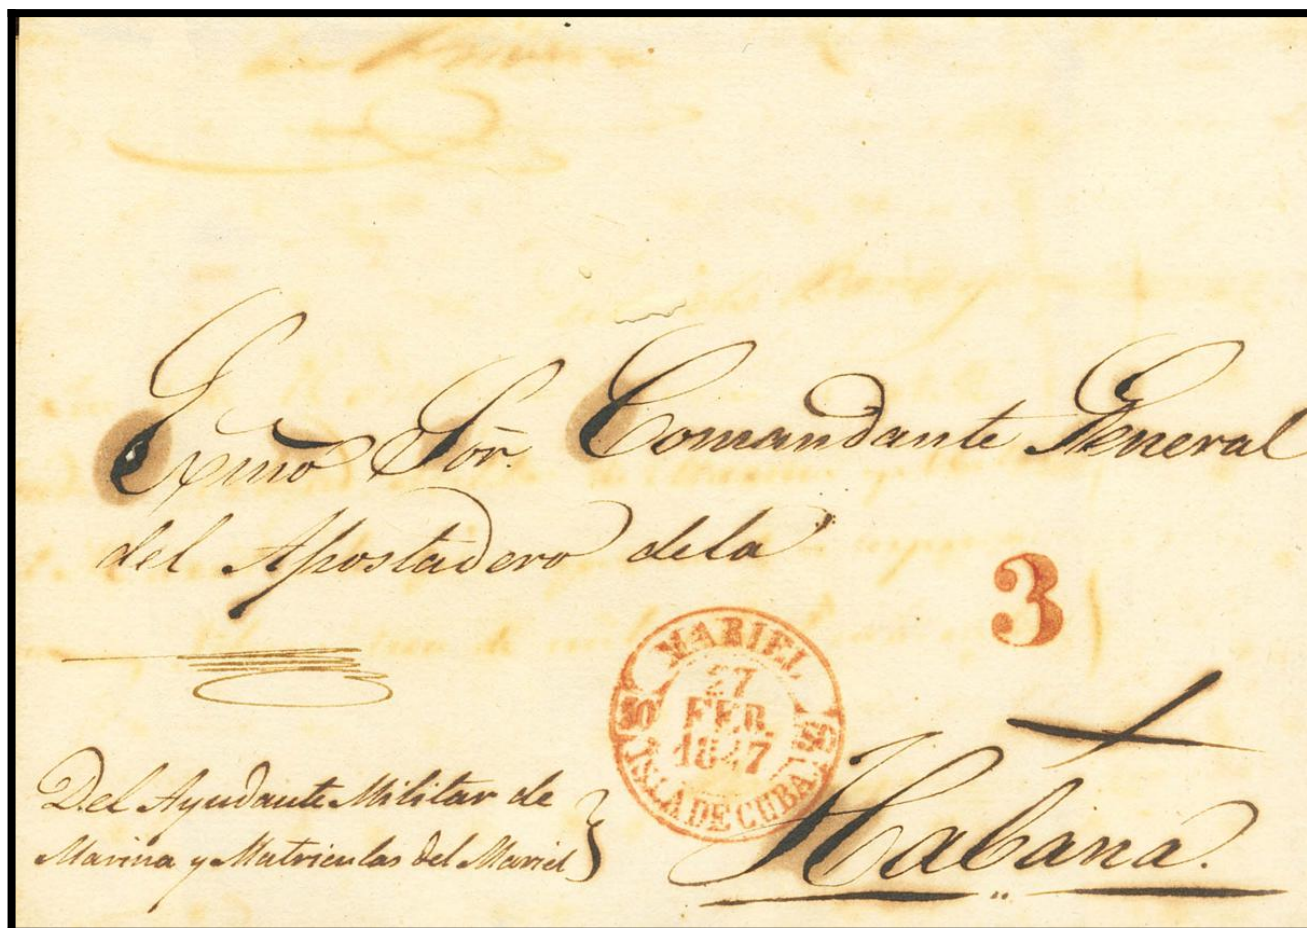 Exmo Sor. Comandante General
del Apostadero dela
3
MARIEL
27
FEB.
1847
ISLA DE CUBA
Del Ayudante Militar de
Marina y Matriculas del Mariel
Habana.